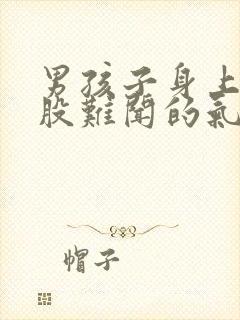 男孩子身上
股難聞的氣
帽子